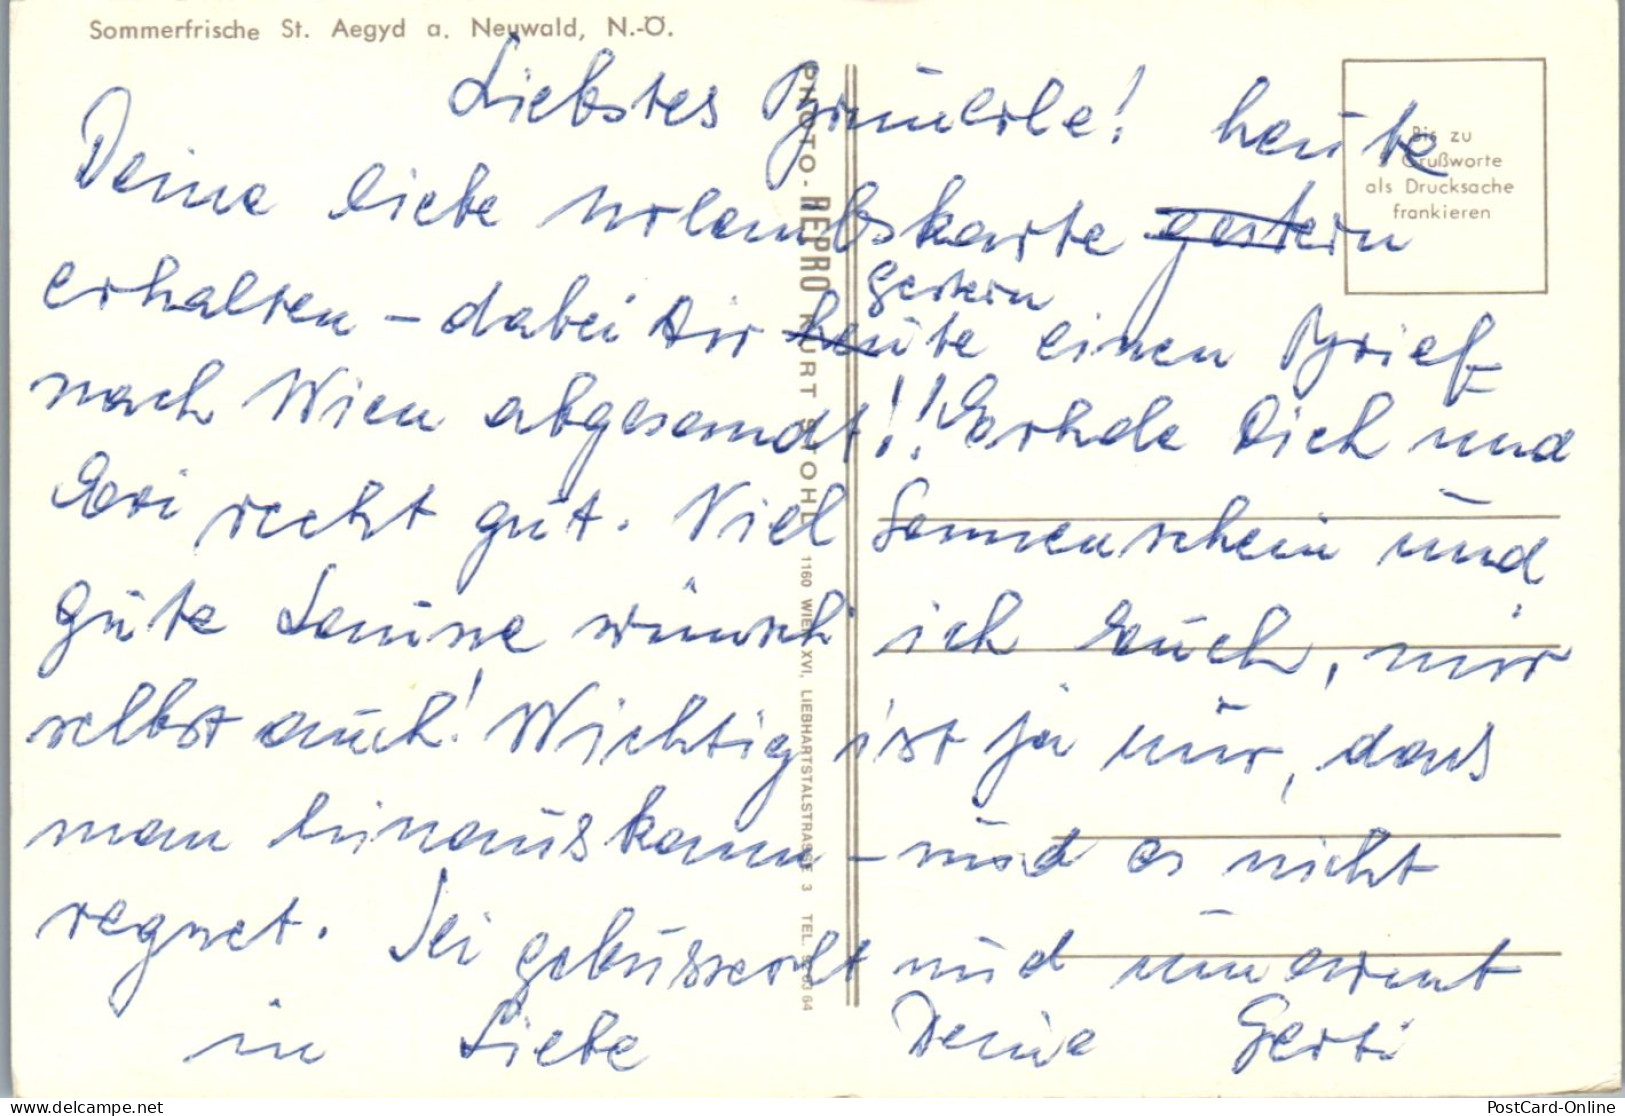 Sommerfrische St. Aegyd a. Neuwald, N.-Ö.
Liebstes Bräuerle! heute
Deine liebe Urlaubskarte gestern
erhalten – dabei Dir heute gestern einen Brief
nach Wien abgesandt!! Erhole Dich und
Evi recht gut. Viel Sonnenschein und
gute Laune wünsch ich Euch, mir
selbst auch! Wichtig ist ja nur, dass
man hinauskann – und es nicht
regnet. Sei gebusserlt und umarmt
in Liebe Deine Gerti
Bis zu
5 Grußworte
als Drucksache
frankieren
PHOTO-REPRO KURT STOHL 1160 WIEN XVI, LIEBHARTSTALSTRASSE 3 TEL. 63 64
PostCard-Online